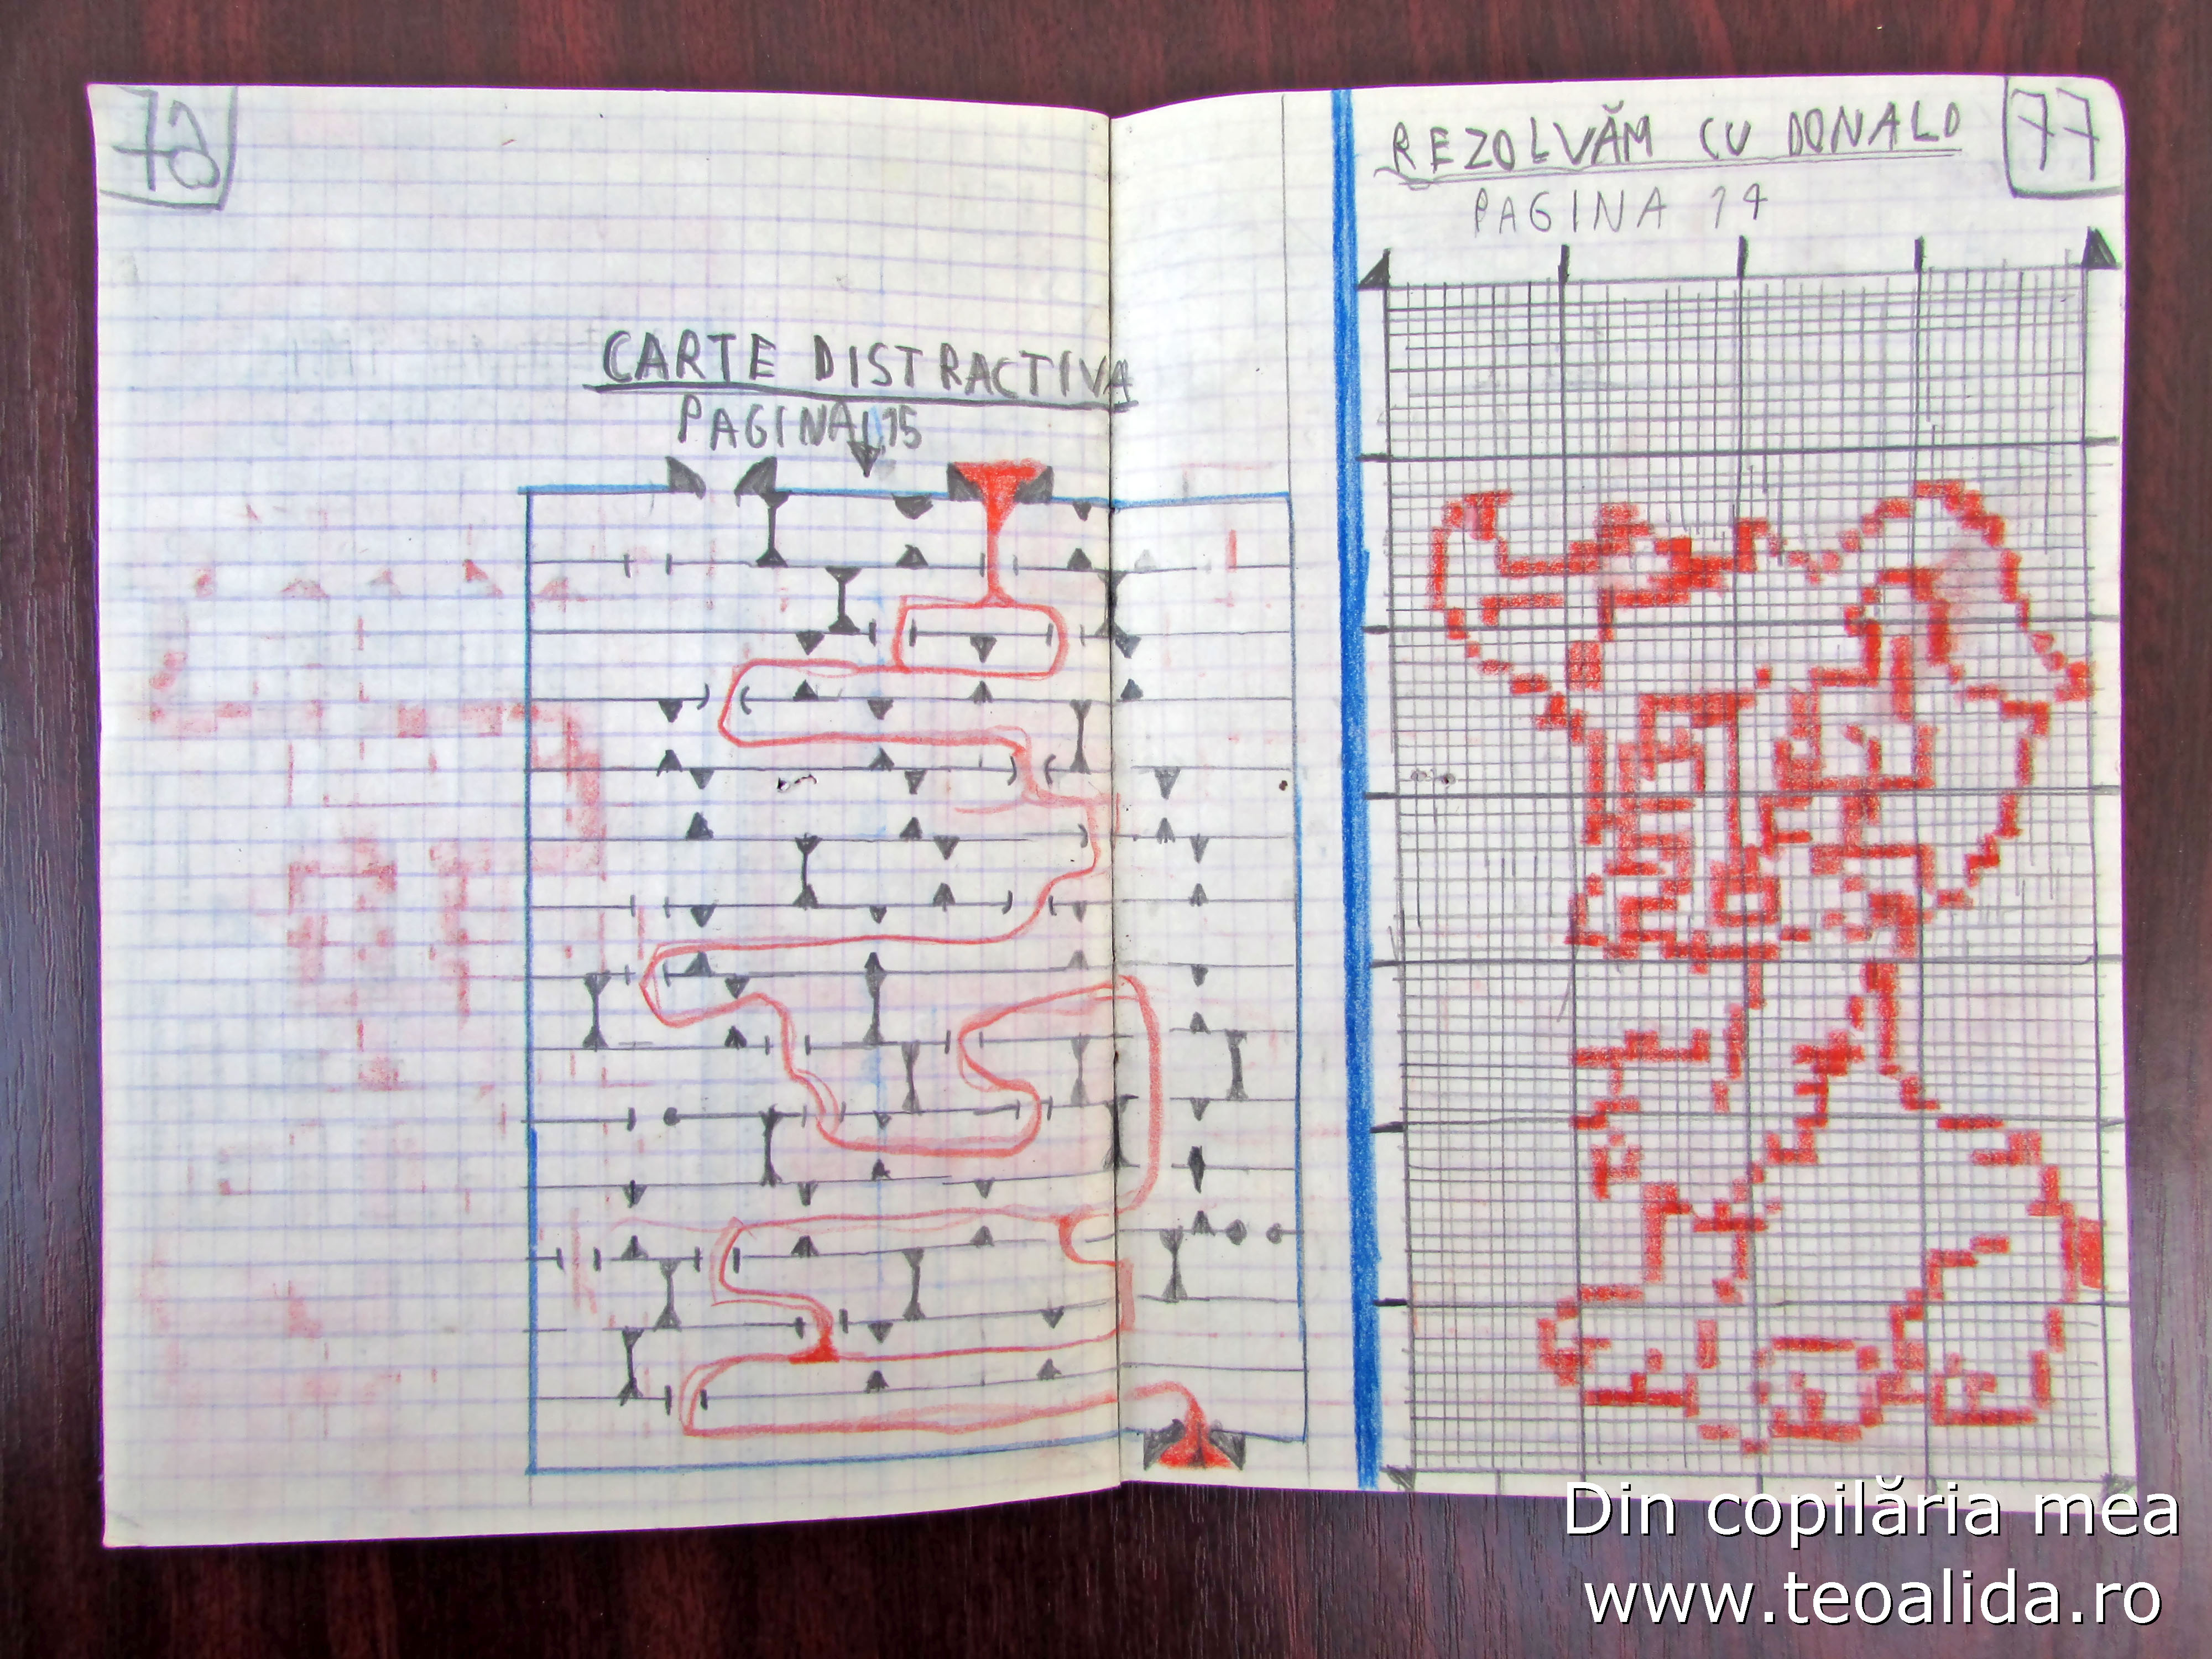 CARTE DISTRACTIVA
PAGINA 15
REZOLVĂM CU DONALD
77
PAGINA 14
Din copilăria mea
www.teoalida.ro